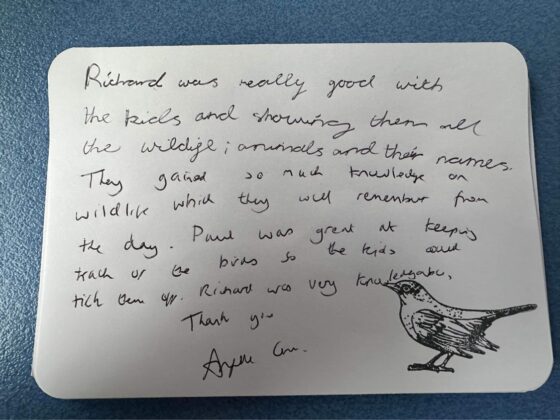 Richard was really good with
the kids and showing them all
the wildlife; animals and their names.
They gained so much knowledge on
wildlife which they will remember from
the day. Paul was great at keeping
track of the birds so the kids could
tick them off. Richard was very knowledgable,
Thank you